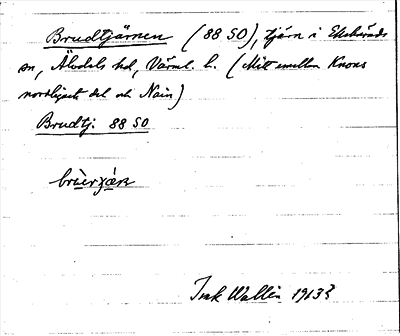 Brudtjärnen (88 SO), tjärn i Ekshärads
sn, Älvdals hd, Värml. l. (Mitt emellan Knons
nordligaste del och Nain)
Brudtj. 88 SO
Isak Wallin 1913